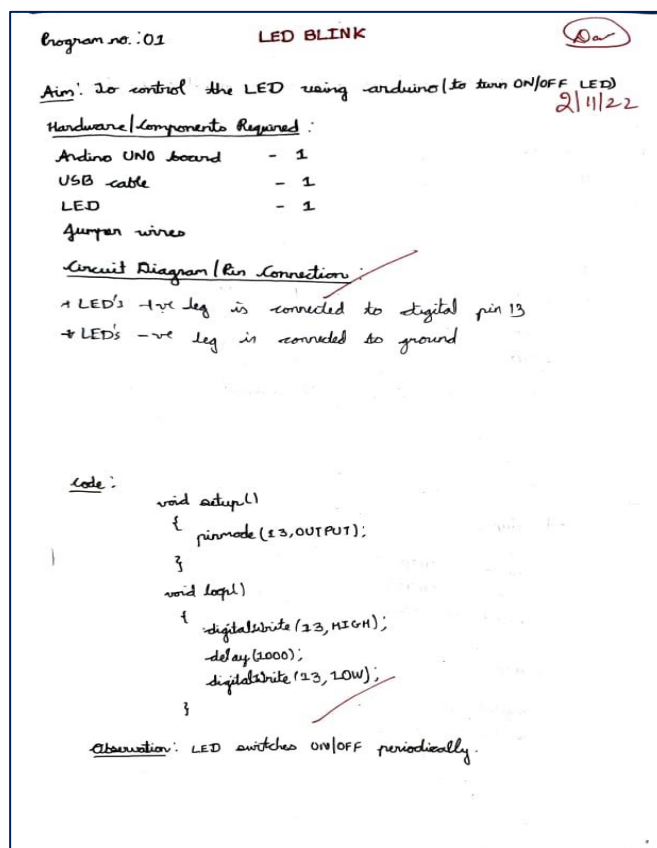 Program no.:01
LED BLINK
Aim: To control the LED using arduino (to turn ON/OFF LED)
2/11/22
Hardware/Components Required:
Ardino UNO board - 1
USB cable - 1
LED - 1
Jumper wires
Circuit Diagram/Pin Connection:
* LED's +ve leg is connected to digital pin 13
* LED's -ve leg is connected to ground
Code:
void setup()
{
pinmode(13,OUTPUT);
}
void loop()
{
digitalWrite(13,HIGH);
delay(1000);
digitalWrite(13,LOW);
}
Observation: LED switches ON/OFF periodically.